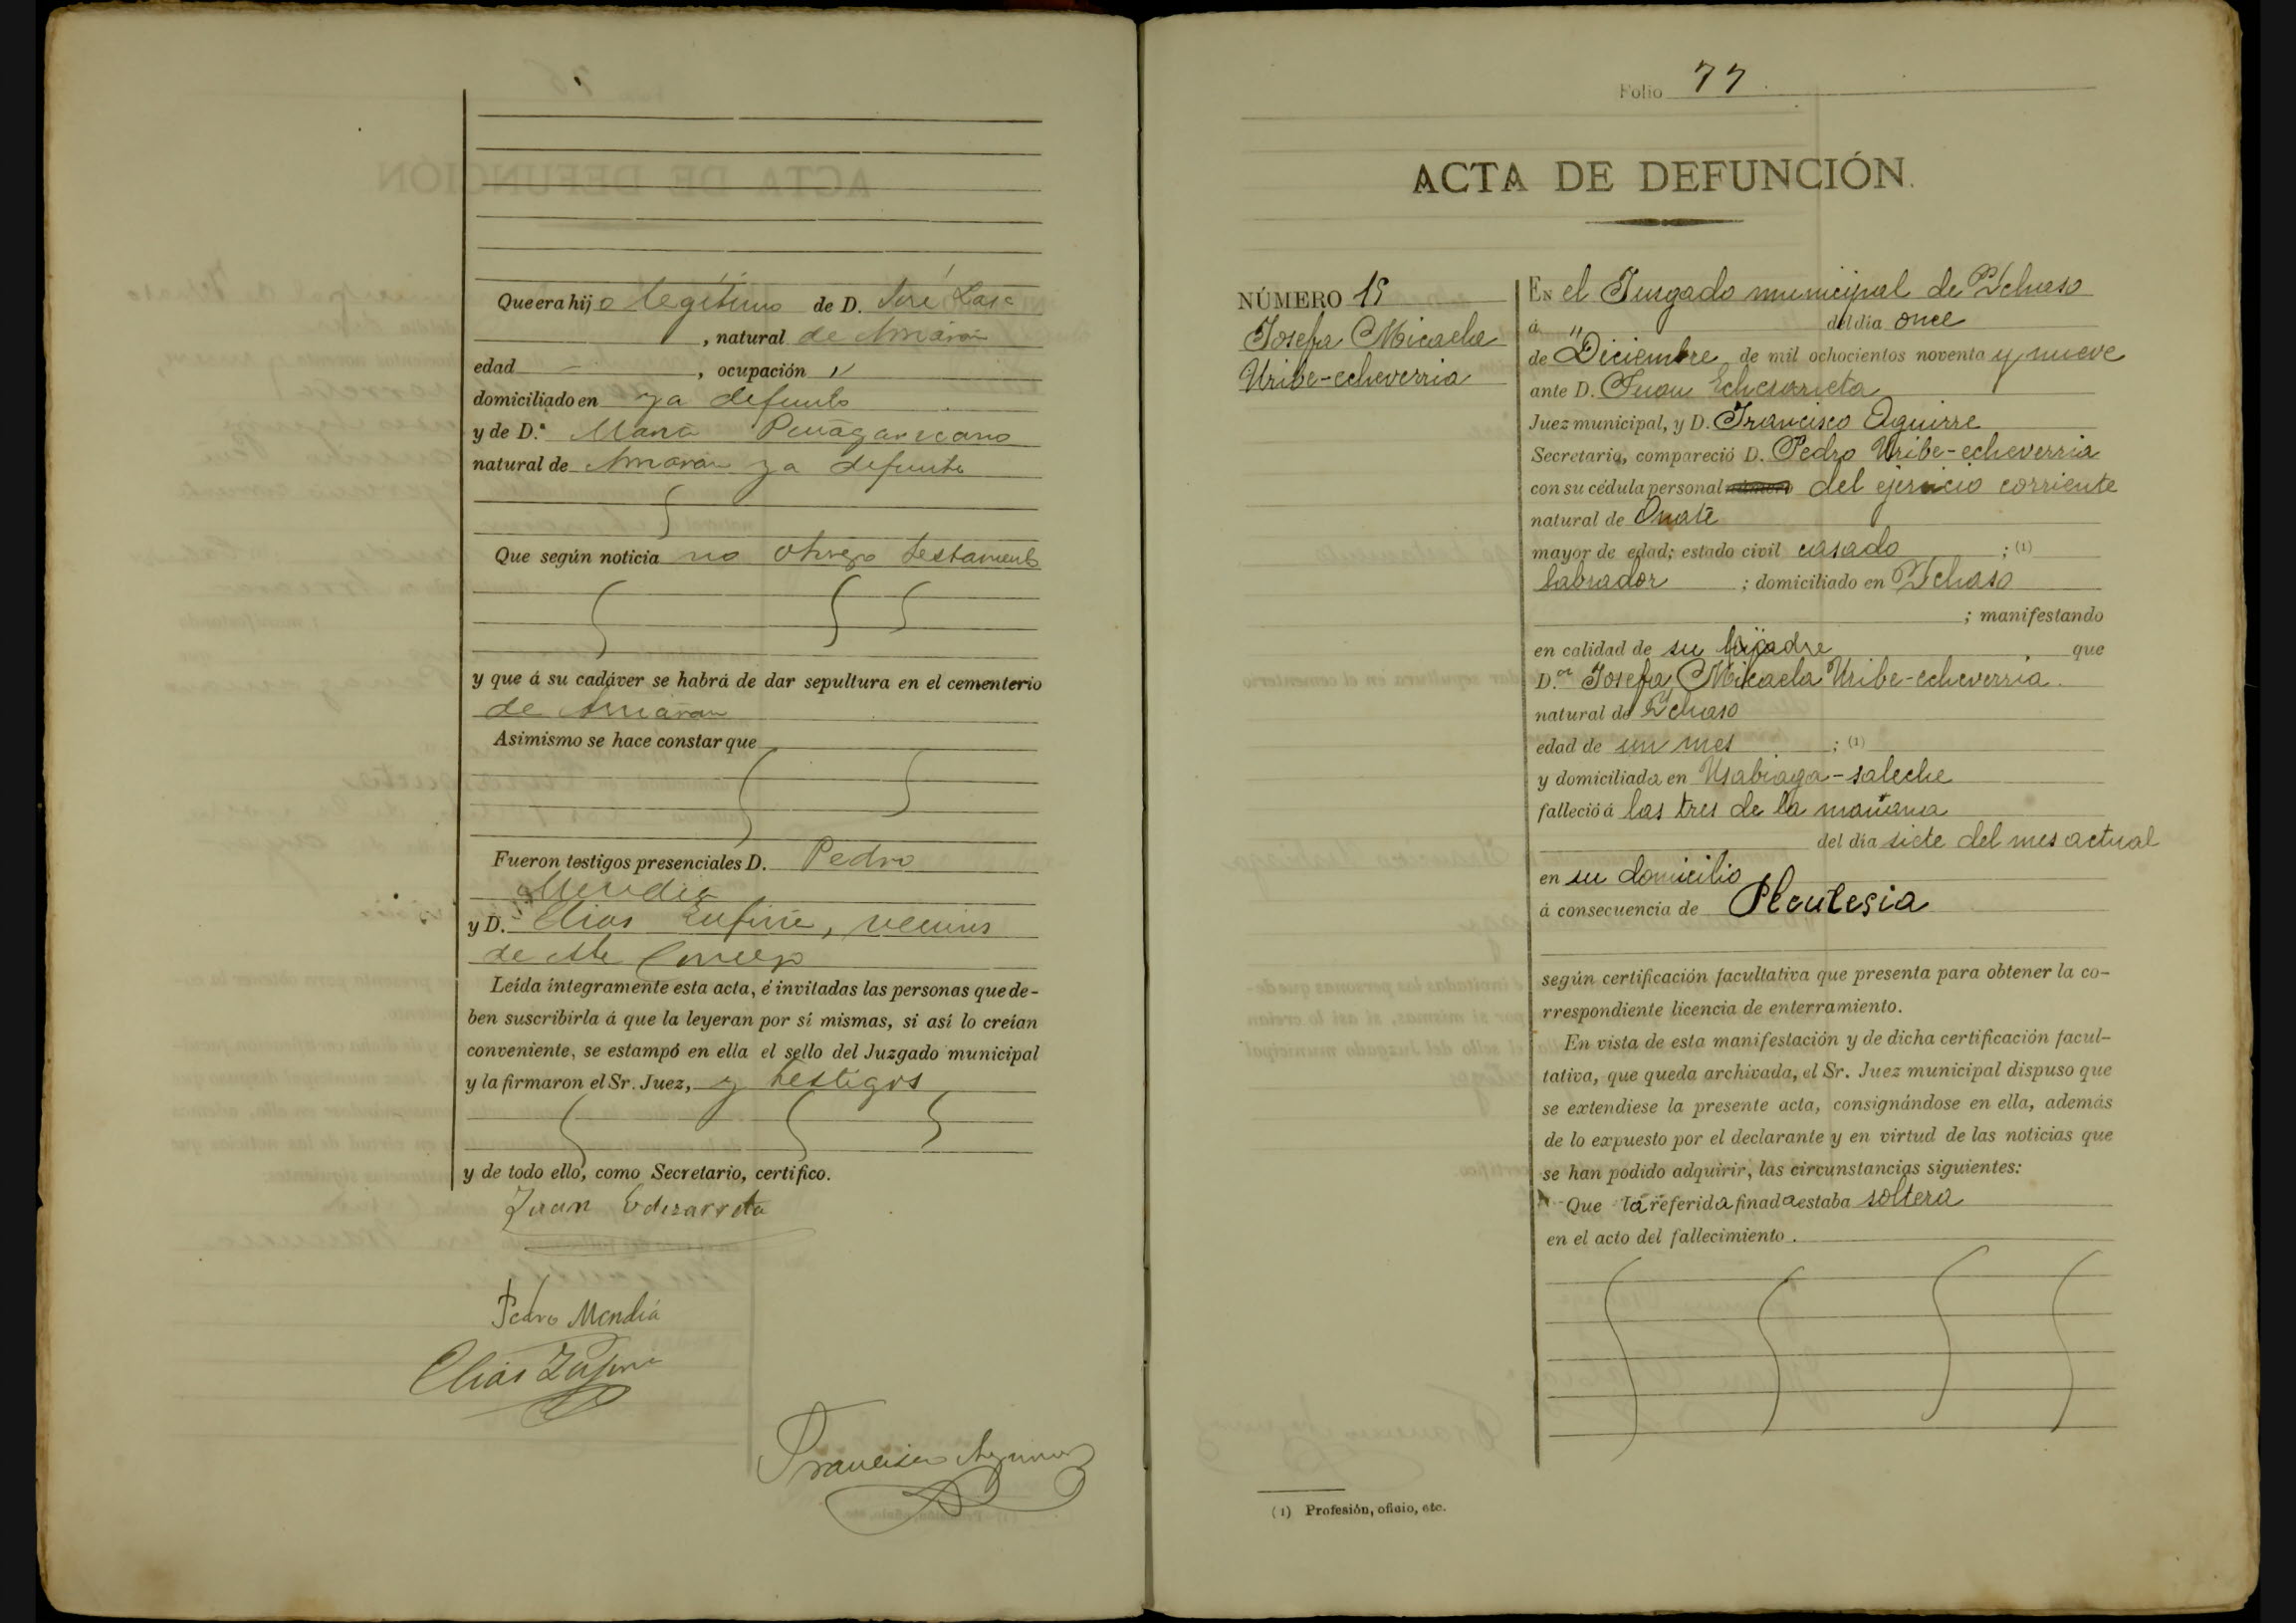 Que era hijo legítimo de D. José Lasa
, natural de Amáran
edad , ocupación "
domiciliado en ya defunto
y de D.ª María Peñagaricano
natural de Amaran ya defunta
Que según noticia no otorgo testamento
y que á su cadáver se habrá de dar sepultura en el cementerio
de Amaran
Asimismo se hace constar que
Fueron testigos presenciales D. Pedro
Mendia
y D. Elias , vecinos
de este Concejo
Leída íntegramente esta acta, é invitadas las personas que de-
ben suscribirla á que la leyeran por sí mismas, si así lo creían
conveniente, se estampó en ella el sello del Juzgado municipal
y la firmaron el Sr. Juez, y testigos
y de todo ello, como Secretario, certifico.
Juan Echezarreta
Pedro Mendia
Elias
Francisco Aguirre
Folio 77.
ACTA DE DEFUNCIÓN.
NÚMERO 15
Josefa Micaela
Uribe-echeverria
EN el Jusgado municipal de Ychaso
á " del dia once
de Diciembre de mil ochocientos noventa y nueve
ante D. Juan Echesarreta
Juez municipal, y D. Francisco Aguirre
Secretario, compareció D. Pedro Uribe-echeverria
con su cédula personal número del ejercicio corriente
natural de Oñate
mayor de edad; estado civil casado ; (1)
labrador ; domiciliado en Ychaso
; manifestando
en calidad de su padre que
D.ª Josefa Mikaela Uribe-echeverria.
natural de Ychaso
edad de un mes ; (1)
y domiciliada en Usabiaga-saleche
falleció á las tres de la mañana
del día siete del mes actual
en su domicilio
á consecuencia de Pleutesia
según certificación facultativa que presenta para obtener la co-
rrespondiente licencia de enterramiento.
En vista de esta manifestación y de dicha certificación facul-
tativa, que queda archivada, el Sr. Juez municipal dispuso que
se extendiese la presente acta, consignándose en ella, además
de lo expuesto por el declarante y en virtud de las noticias que
se han podido adquirir, las circunstancias siguientes:
Que la referida finada estaba soltera
en el acto del fallecimiento.
(1) Profesión, oficio, etc.